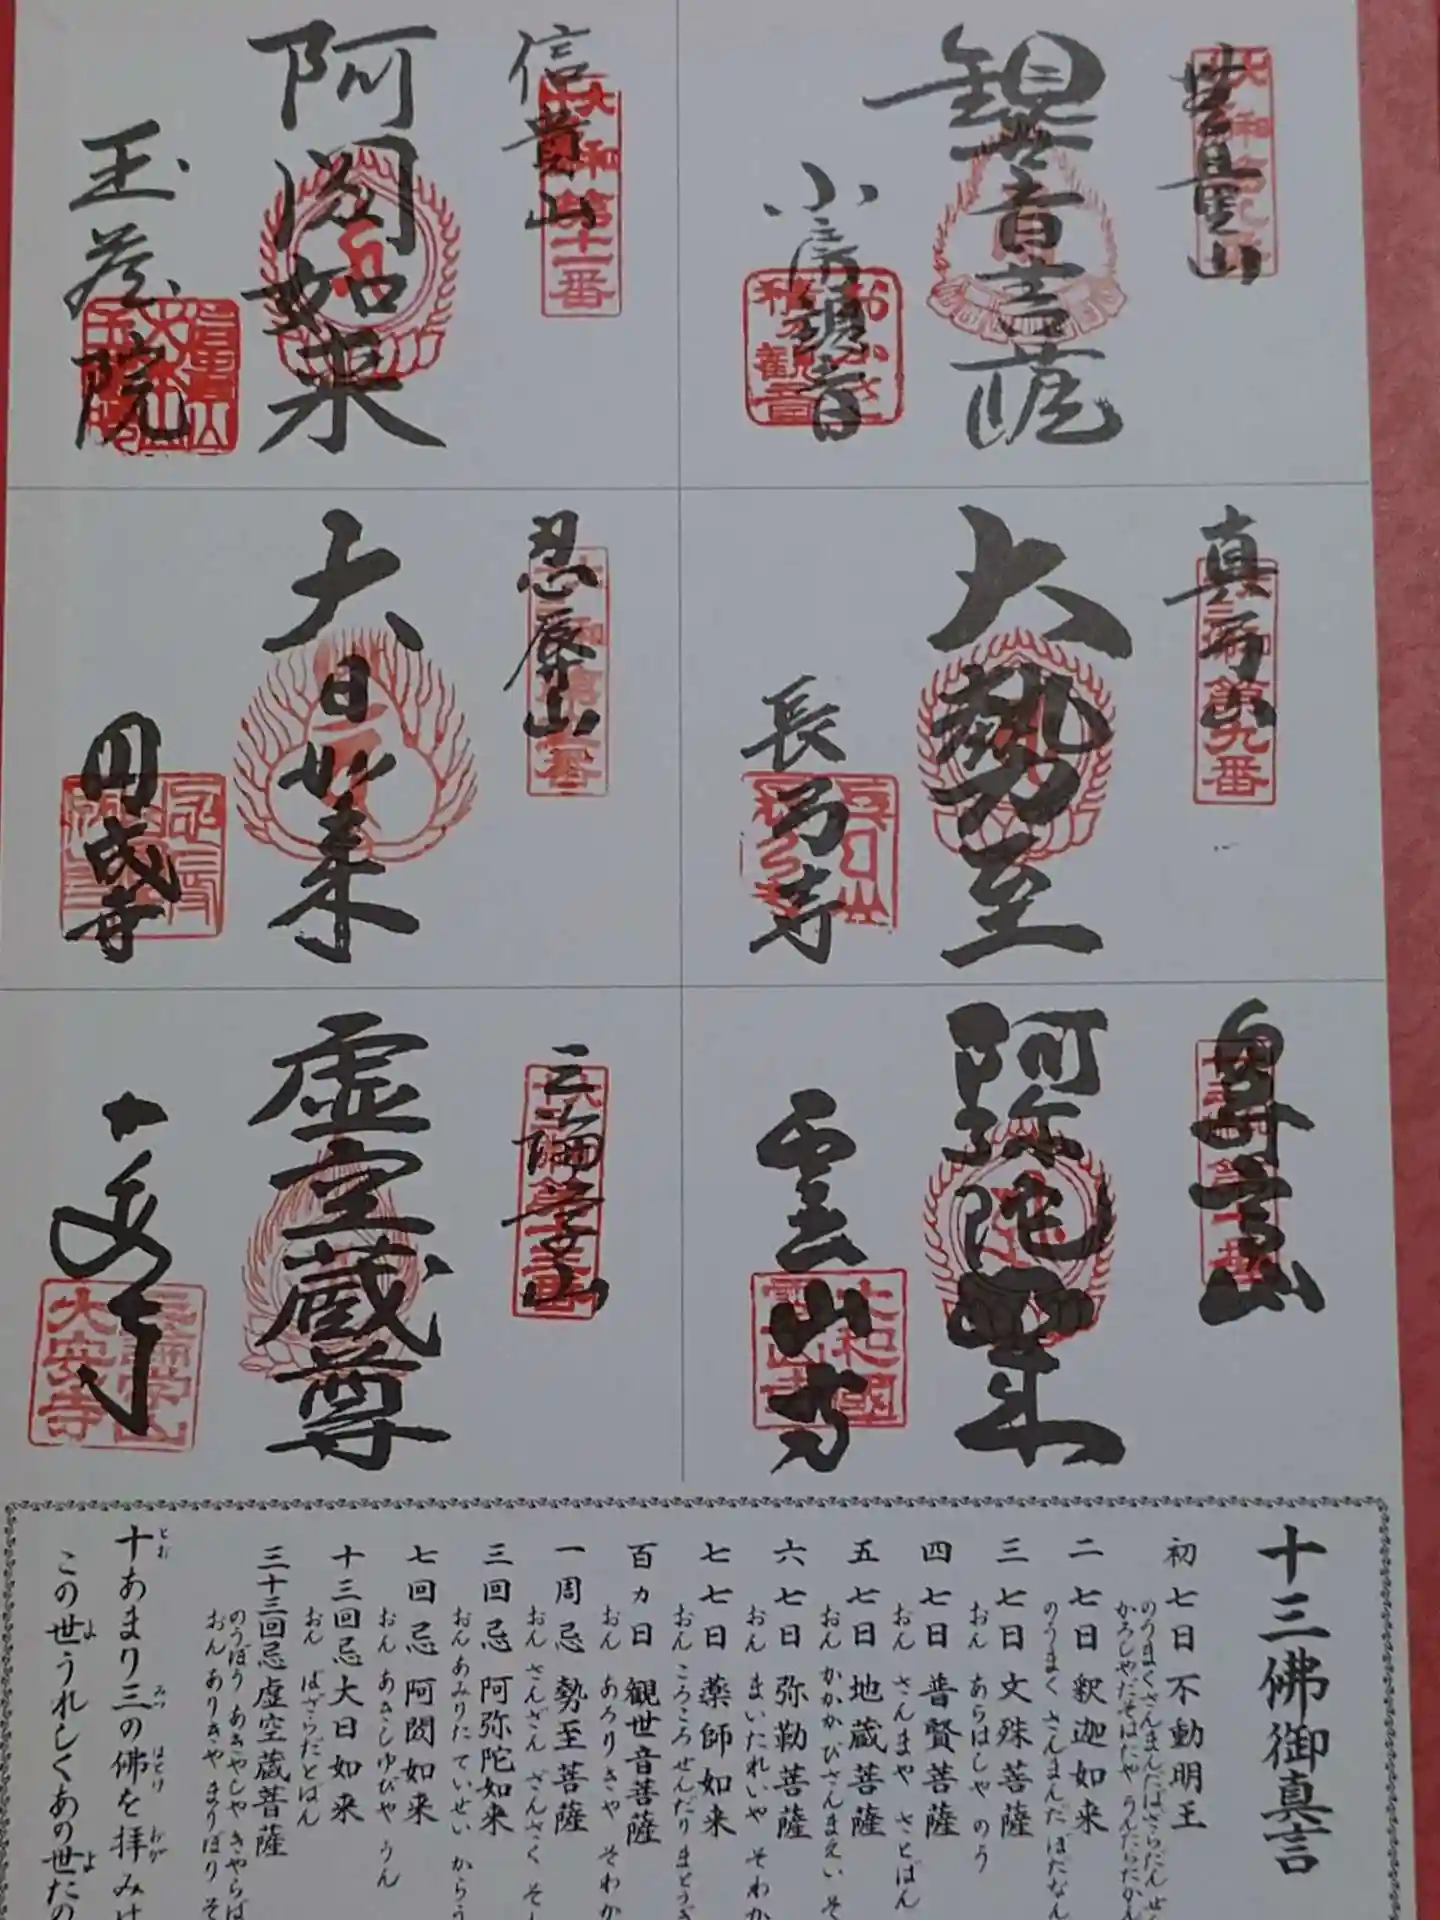 観世音菩薩
小房観音
信貴山
大和第十一番
阿閦如来
玉蔵院
真弓山
第九番
大勢至
長弓寺
忍辱山
大日如来
円成寺
阿弥陀如来
霊山寺
大和國
三論学山
虚空蔵尊
三論学山
大安寺
十三佛御真言
初七日不動明王
のうまくさんまんだばざらだん
かろしやだそはたや うんたらたかん
二七日釈迦如来
のうまく さんまんだ ぼだなん
三七日文殊菩薩
おん あらはしや のう
四七日普賢菩薩
おん さんまや さとばん
五七日地蔵菩薩
おん かかか びさんまえい そ
六七日弥勒菩薩
おん まいたれいや そわか
七七日薬師如来
おん ころころ せんだり まとうぎ
百ヵ日観世音菩薩
おん あろりきや そわか
一周忌勢至菩薩
おん さんざん ざんさく そ
三回忌阿弥陀如来
おん あみりた ていせい からう
七回忌阿閦如来
おん あきしゆびや うん
十三回忌大日如来
おん ばざらだとばん
三十三回忌虚空蔵菩薩
のうぼう あきやしや きやらば
おん ありきや まりぼり そ
十あまり三の佛を拝みけ
この世うれしくあの世たの